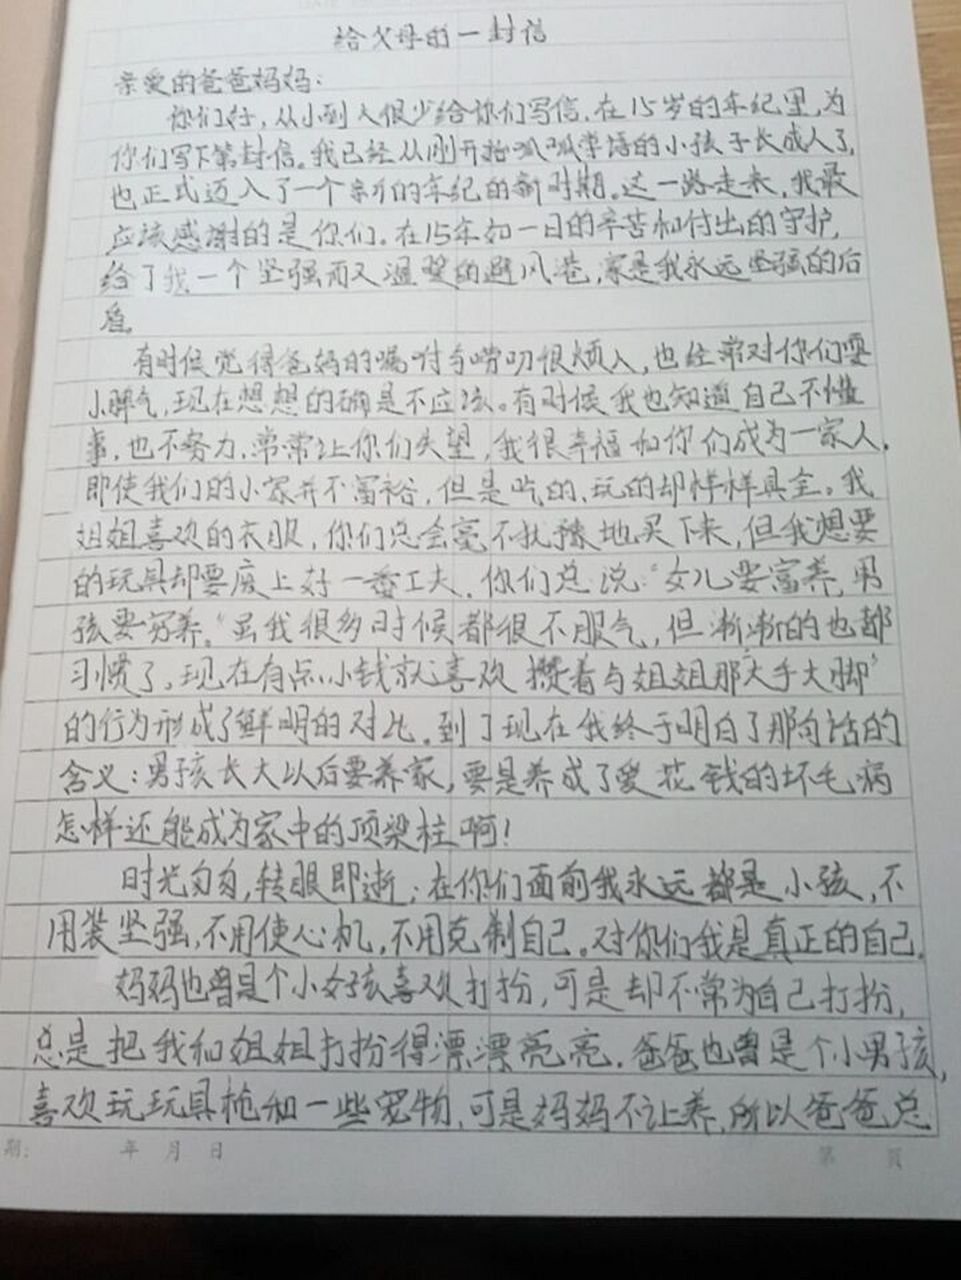 给父母的一封信
亲爱的爸爸妈妈：
你们好，从小到大很少给你们写信，在15岁的年纪里，为
你们写下第封信。我已经从刚开始呱呱学语的小孩子长成人了，
也正式迈入了一个崭新的年纪的新时期。这一路走来，我最
应该感谢的是你们。在15年如一日的辛苦和付出的守护，
给了我一个坚强而又温暖的避风港，家是我永远坚强的后
盾。
有时候觉得爸妈的嘱咐与唠叨很烦人，也经常对你们耍
小脾气，现在想想的确是不应该。有时候我也知道自己不懂
事，也不努力，常常让你们失望，我很幸福和你们成为一家人。
即使我们的小家并不富裕，但是吃的、玩的却样样具全。我
姐姐喜欢的衣服，你们总会毫不犹豫地买下来，但我想要
的玩具却要废上好一番工夫。你们总说：“女儿要富养，男
孩要穷养。”虽我很多时候都很不服气，但渐渐的也都
习惯了，现在有点小钱就喜欢攒着与姐姐那“大手大脚”
的行为形成了鲜明的对比。到了现在我终于明白了那句话的
含义：男孩长大以后要养家，要是养成了爱花钱的坏毛病
怎样还能成为家中的顶梁柱啊！
时光匆匆，转眼即逝；在你们面前我永远都是小孩，不
用装坚强，不用使心机，不用克制自己。对你们我是真正的自己。
妈妈也曾是个小女孩喜欢打扮，可是却不常为自己打扮，
总是把我和姐姐打扮得漂漂亮亮。爸爸也曾是个小男孩，
喜欢玩玩具枪和一些宠物，可是妈妈不让养，所以爸爸总
期： 年 月 日 第 页